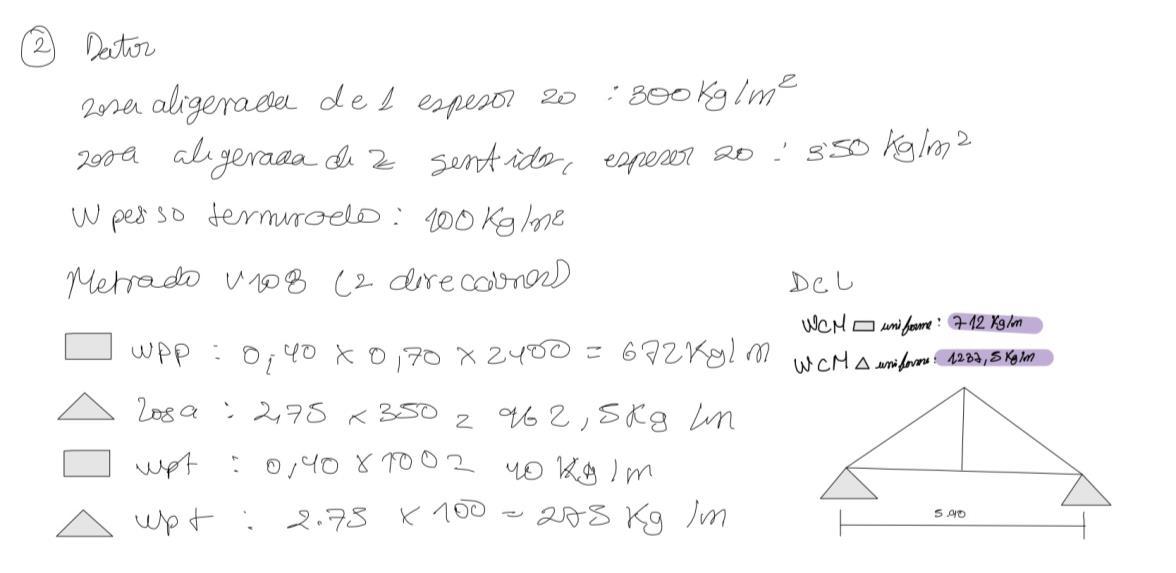 2 Datos
Losa aligerada de 1 espesor 20 : 300 Kg/m²
Losa aligerada de 2 sentidos, espesor 20 : 350 Kg/m²
W peso terminado : 100 Kg/m2
Metrado V108 (2 direcciones)
wpp : 0,40 x 0,70 x 2400 = 672 Kg/m
losa : 2,75 x 350 = 962,5 Kg/m
wpt : 0,40 x 100 = 40 Kg/m
wpt : 2.75 x 100 = 275 Kg/m
DCL
WCM uniforme : 712 Kg/m
WCM uniforme : 1237,5 Kg/m